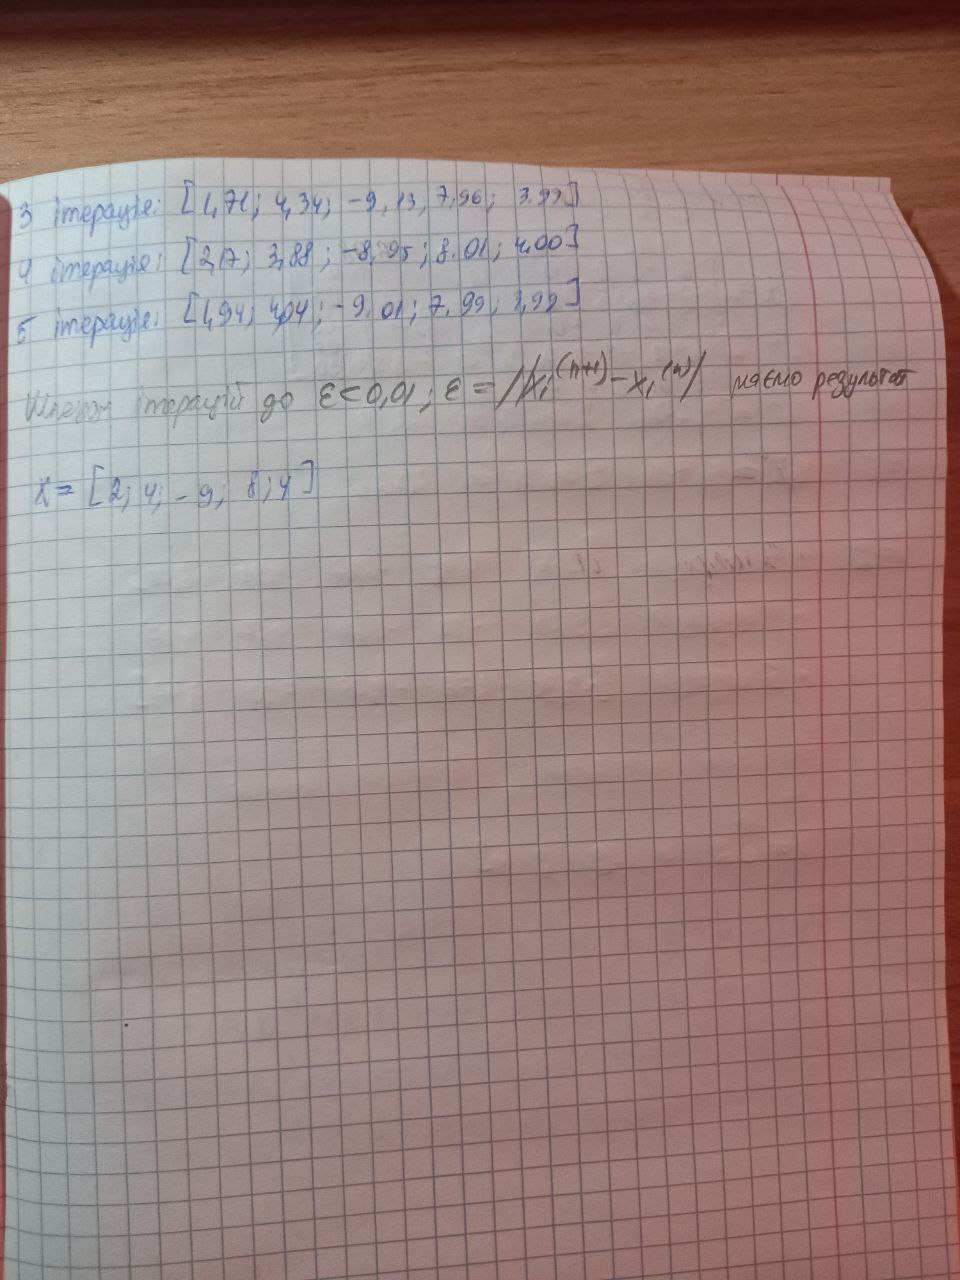 3 ітерація: [1,71; 4,34; -9,13, 7,96; 3,99]
4 ітерація: [2,17; 3,88; -8,95; 8.01; 4,00]
5 ітерація: [1,94; 4,04; -9,01; 7,99; 3,99]
Шляхом ітерацій до ε<0,01; ε = |X₁⁽ⁿ⁺¹⁾ - x₁⁽ⁿ⁾| маємо результат
x = [2; 4; -9; 8; 4]